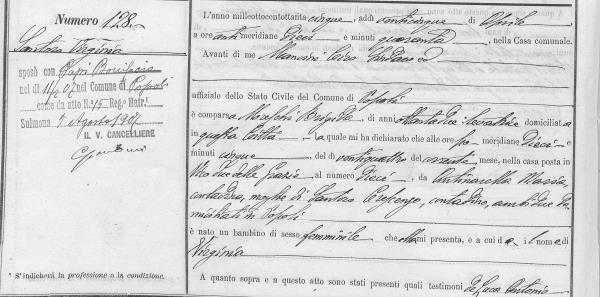 Numero 128.
Santoro Virginia
sposò con Bonifacio
nel dì 11/7/07 nel Comune di Popoli
come da atto N. 45 Reg. Matr.
Sulmona 7 Agosto 907
IL V. CANCELLIERE
* S'indicherà la professione o la condizione.
L'anno milleottocentottantacinque, addì venticinque di Aprile,
a ore antimeridiane Dieci e minuti quaranta, nella Casa comunale.
Avanti di me Mancini Sindaco
uffiziale dello Stato Civile del Comune di Popoli
è comparsa Brigida, di anni ottantadue levatrice domiciliata
in questa Città, la quale mi ha dichiarato che alle ore po-meridiane Dieci e
minuti cinque, del dì ventiquattro del corrente mese, nella casa posta in
Via delle Grazie al numero Dieci, da Antinarella Maria,
contadina, moglie di Santoro Crescenzo, contadino, ambidue do
miciliati in Popoli
è nato un bambino di sesso femminile che ella mi presenta, e a cui dà il nome di
Virginia
A quanto sopra e a questo atto sono stati presenti quali testimoni de Luca Antonio